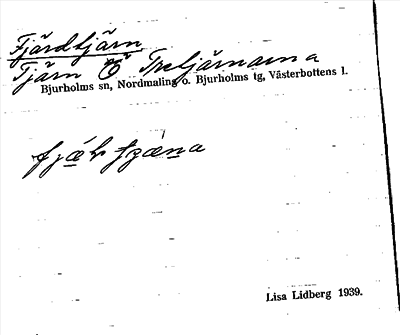 Fjärdtjärn
Tjärn Ö Tretjärnarna
Bjurholms sn, Nordmaling o. Bjurholms tg, Västerbottens l.
Lisa Lidberg 1939.